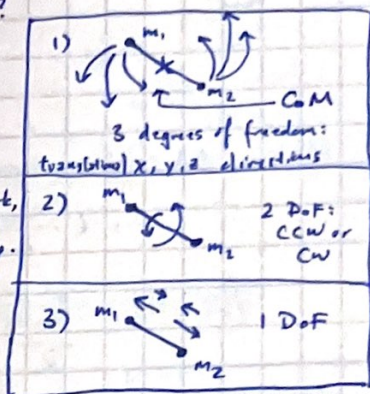 1) m₁
m₂
CoM
3 degrees of freedom:
translational x, y, z directions
2) m₁
2 DoF:
CCW or
m₂ CW
3) m₁
1 DoF
m₂